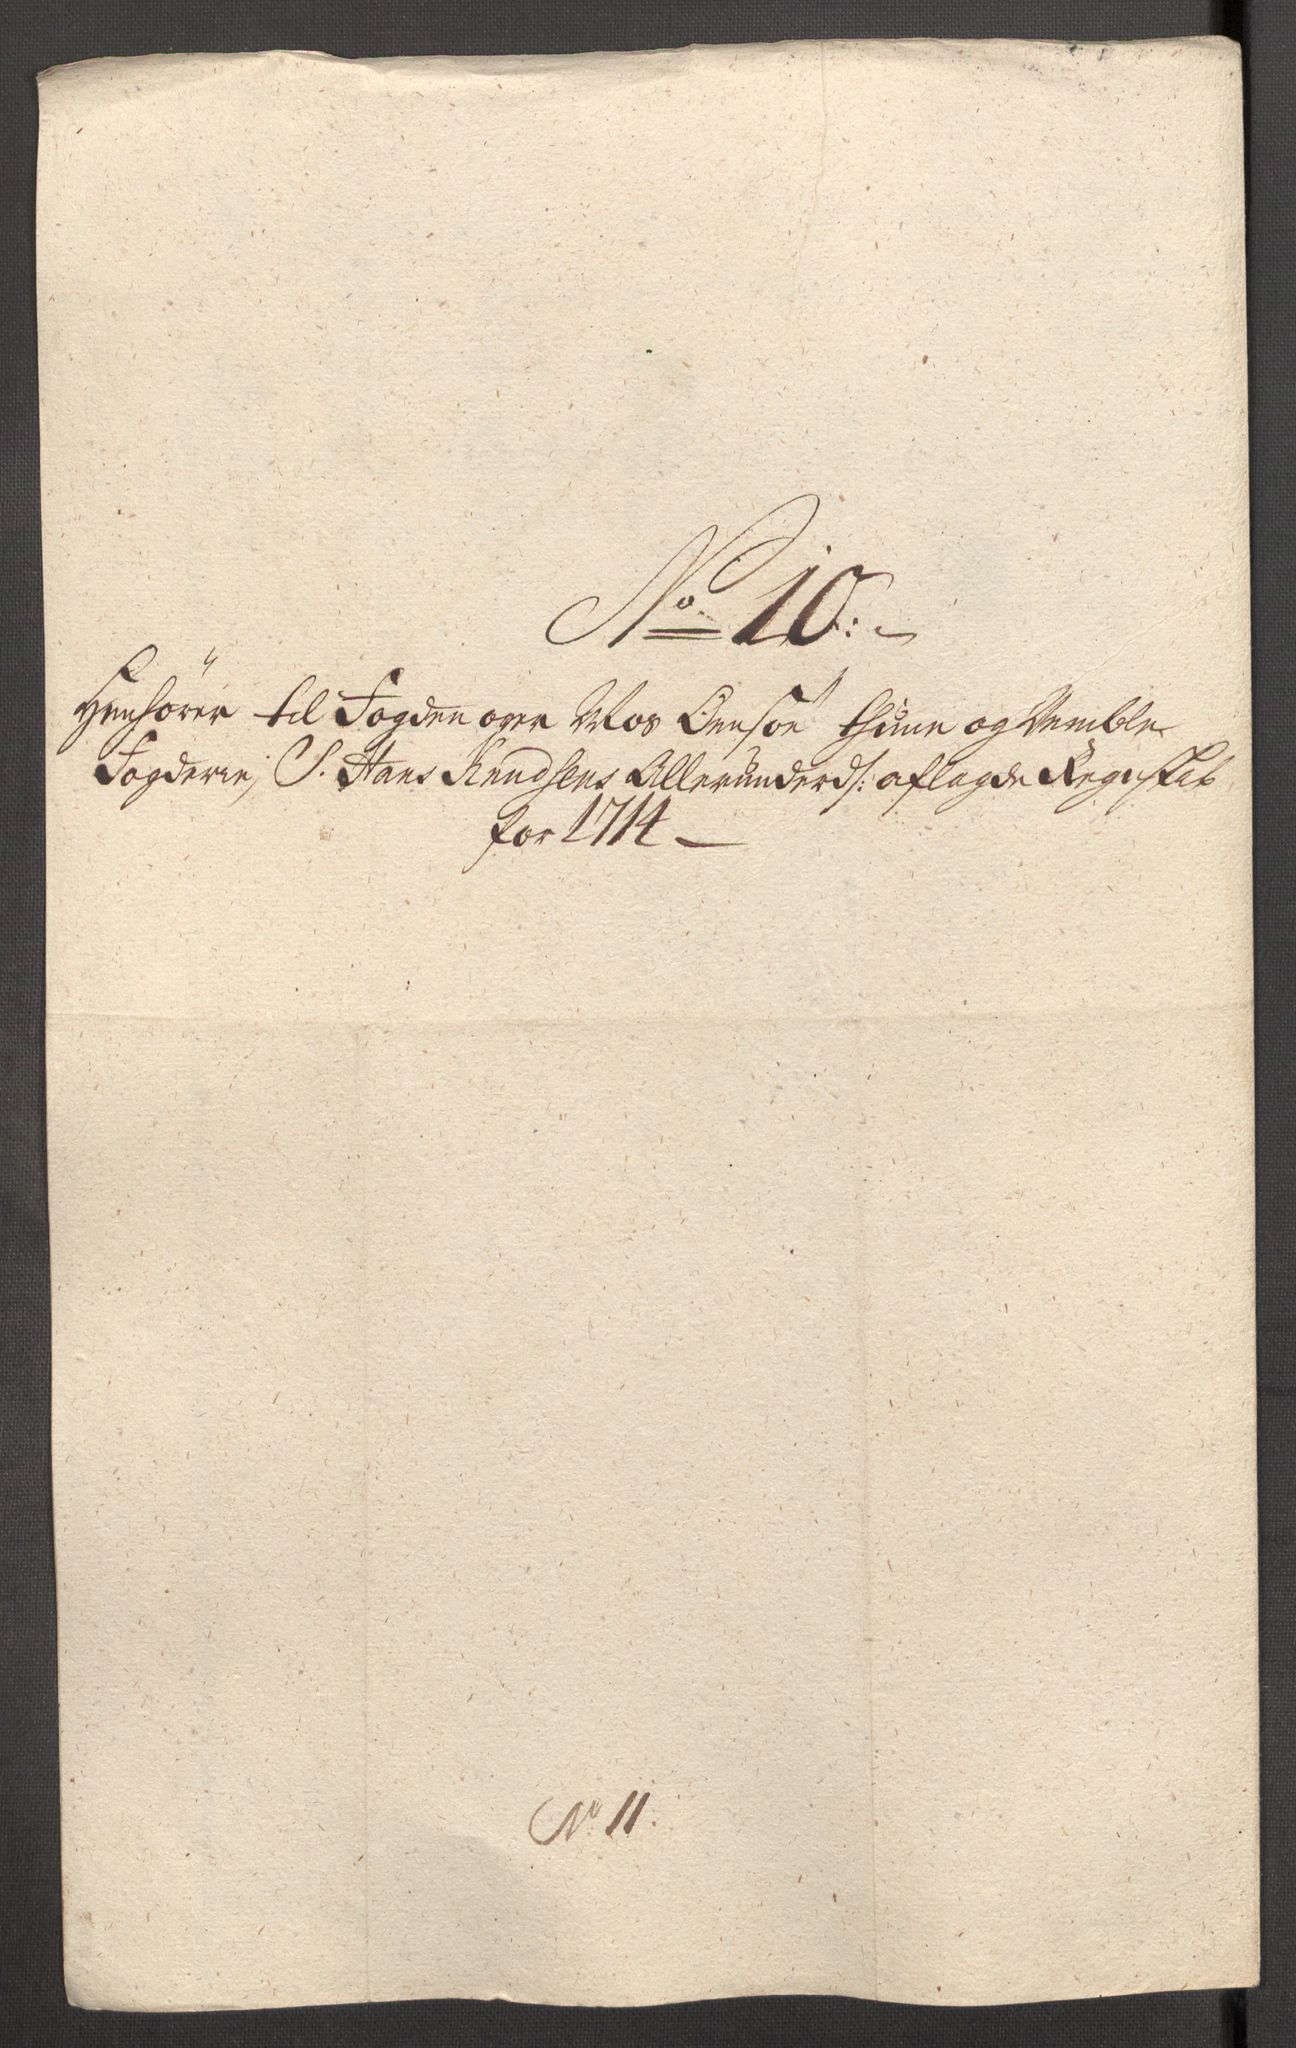 No 10:
Henhörer til Fogden over Mos Onsöe thune og Vemble
Fogderie, S. Hans Knudsens Allerunderd: aflagde Regnskab
for 1714
No 11.